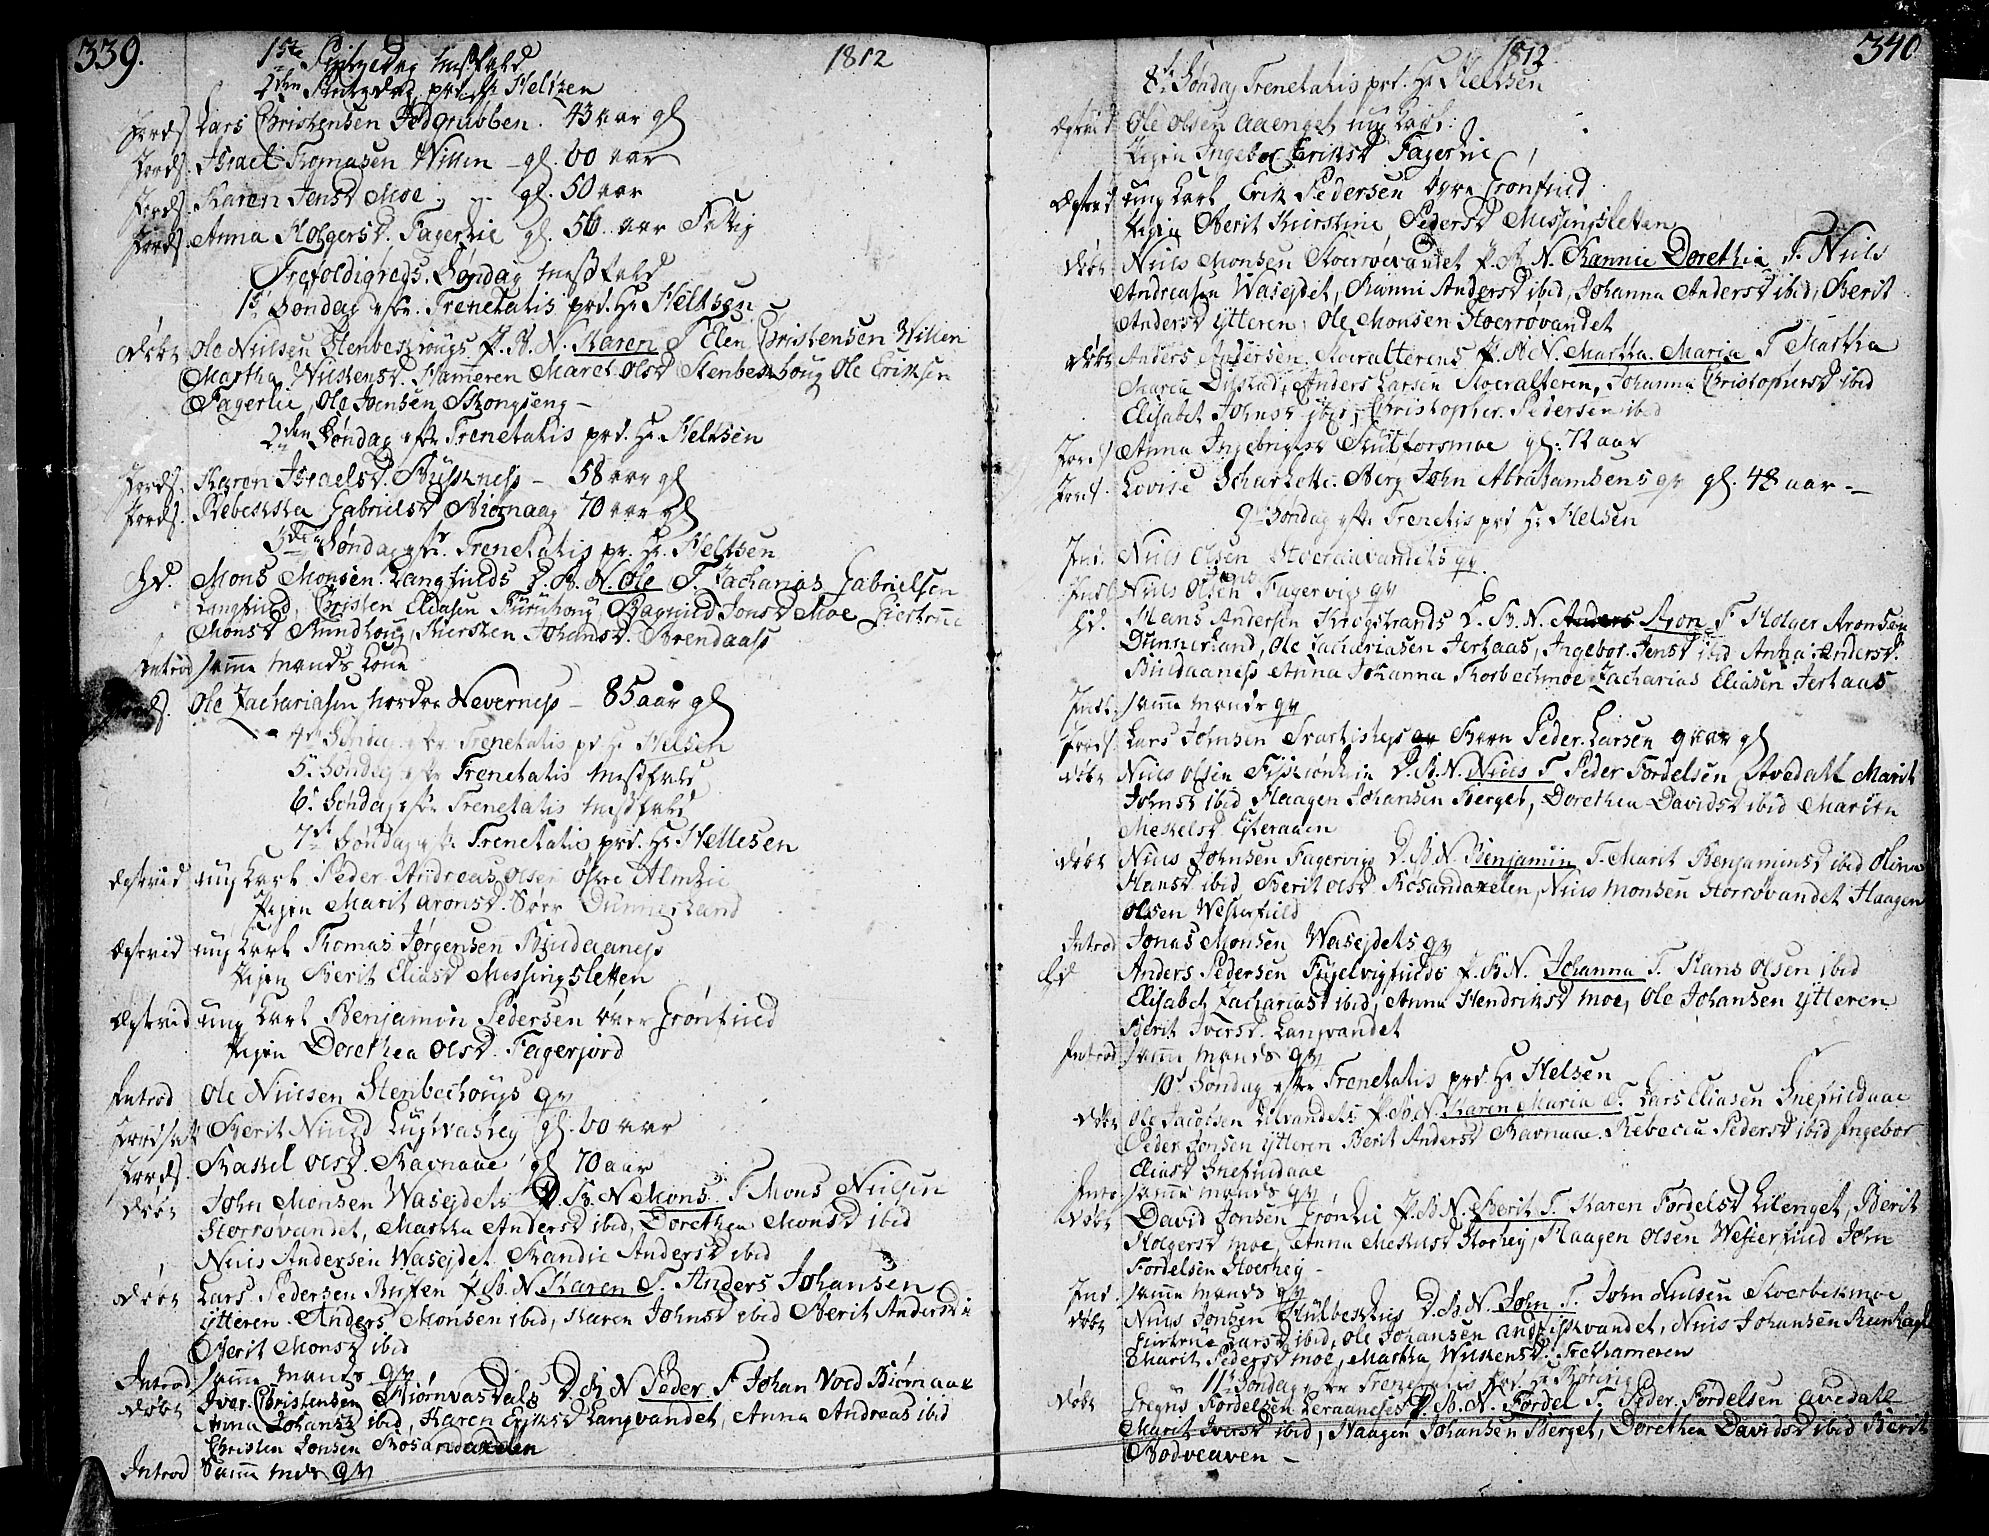 339. 1812
1ste Pintzedag Messfald
2den Pintzedag præd. Hr Heltzen
Jords. Lars Christensen Jodgrubben. 43 aar gl
Jords. Israel Thomasen Willen gl. 60 aar
Jords. Karen Jensd Moe gl. 50 aar
Jords. Anna Holgersd. Fagerlie gl. 56 aar Fattig
Trefoldigheds Søndag Messfald
1st Søndag efter Trenetatis præd. Hr Heltsen
Døbt Ole Nielsen Stenbekhougs P. B. N. Karen F Elen Christensen Willen
Martha Nilsensd. Hameren Maret Olsd Stenbekhoug Ole Eriksen
Fagerlie, Ole Joensen Skongseng
2den Søndag efter Trenetatis præd. Hr Heltsen
Jords. Karen Israelsd. Buskness 58 aar gl
Jords. Rebekka Gabrielsd Biørnaag 70 aar gl
3die Søndag efter Trenetatis pr. Hr. Heltsen
Gd. Mons Monsen Langfields D. B. N. Ole F. Zacharias Gabrielsen
Langfield, Christen Eliasen Furuhoug Ragnild Jonsd Moe
Monsd Rundhoug, Kiersten Johansd. Brendaass
Introd samme mands kone
Jords. Ole Zachariasen nordre Neverness 85 aar gl
4de Søndag efter Trenetatis pd Hr Helsen
5te Søndag efter Trenetatis Messfald
6te Søndag efter Trenetatis Messfald
7de Søndag efter Trenetatis præd. Hr Hellesen
Egtevid ung karl Peder Andreas Olsen østre Almlie
Pigen Marit Aronsd. Sørr Dunnerland
Egtevid ung karl Thomas Jørgensen Bindaaness
Pigen Berit Eliasd Messingsletten
Egtevid ung karl Benjamin Pedersen Øver Grønfield
Pigen Dorethea Olsd. Fagerjord
Introd Ole Nielsen Stenbechougs qv
Jordsat Berit Nield gl. 60 aar
Jords. Rakkel Olsd. Ravnaae gl 70 aar
Døbt John Monsen Wasejdets D B. N Mons F Mons Nielsen
Storrøvandet, Martha Andersd ibid, Dorethea Monsd ibid
Niels Andersen Wasejdet Randie Andersd ibid
Døbt Lars Pedersen Rufsen P. B. N Karen F. Anders Johansen
ytteren. Anders Monsen ibid, Karen Johnsd ibid Berit Andersd i
Berit Monsd ibid
Introd samme mands qv
Døbt Iver Christensen Stiørnvasdals D. B N Peder F Johan Nord Biørnaae
Anna Johansd ibid, Karen Eriksd Langvandet, Anna Andreasd ibid
Christen Jonsen Røsandaxelen
Introd Samme mds qv
340 1812
8de Søndag Trenetatis præd. Hr Heltsen
Egtevid Ole Olsen Aaenget ung karl.
Pigen Ingebor Eriksd Fagerlie
Egtevid ung karl Erik Pedersen øvre Grønfield
Pigen Berit Kirstine Pedersd Messingsletten
Døbt Niels Monsen Storrøvandet P. B N. Rannie Dorethia F. Niels
Andreasen Wasejdet, Ranni Andersd ibid, Johanna Andersd ibid, Berit
Andersd ytteren, Ole Monsen Stoerrøvandet
Døbt Anders Andersen Stoeralterens P. B N. Martha Maria F Martha
Maria Dilstad, Anders Larsen Stoeralteren, Johanna Christophersd ibid
Elisabet Johnsd ibid, Christopher Pedersen ibid
Jords Anna Ingebrigtsd Skutforsmoe gl. 72 aar
Jords. Lovise Scharlotte Berg John Abrahamsens qv gl. 48 aar
9de Søndag efter Trenetis prd Hr Helsen
Int. Niels Olsen Stoeraavandets qv.
Indl. Niels Olsen Fagervigs qv
Gd. Hans Andersen Krogstrands D. B. N. Anders Aron F Holger Aronsen
Dunnerland, Ole Zachariasen Jerhaas, Ingebor Jensd ibid Anna Andersd.
Bindaaness Anna Johanna Thorbechmoe Zacharias Eliasen Jerhaas
Indl. samme mands qv
Jords Lars Johnsen Svartishejs Barn Peder Larsen 9 gl
Døbt Niels Olsen D. B. N. Niels F Peder Fordelsen Avedall Marit
Johnsd ibid Haagen Johansen Berget, Dorethea Davidsd ibid Mariten
Mekelsd. Ytteraaen
Døbt Niels Johnsen Fagervigs D. B. N. Benjamin F. Marit Benjaminsd ibid Olina
Hansd ibid, Berit Olsd Røsandaxelen, Niels Monsen Storrøvandet Haagen
Olsen Westerfield
Introd Jonas Monsen Wasejdets qv
Gd Anders Pedersen Fugelvigfields P. B N. Johanna F. Hans Olsen ibid
Elisabet Zachariasd ibid, Anna Hendriksd moe, Ole Johansen ytteren
Berit Iversd. Langvandet
Introd samme mands qv
10d Søndag efter Trenetatis prd Hr Helsen
Døbt Ole Jacobsen Lilvandets P. B. N. Karen Maria F. Lars Eliasen Snefieldaae
Peder Jonsen ytteren Berit Andersd Ravnaae, Rebecca Pedersd ibid Ingebor
Eliasd Snefieldaae
Intro samme mands qv
Døbt David Jonsen Grønlie P. B N. Berit F. Karen Fordelsd Lilenget, Berit
Holgersd moe, Anna Mekelsd Storhej, Haagen Olsen Westerfield John
Fordelsen Stoerhej
Ind samme mands qv
Døbt Niels Jonsen D. B N. John F. John Nielsen Skoerbekmoe
Larsd ibid, Ole Johansen Andfiskvandet, Niels Johansen
Marit Pedersd moe, Martha Nilsensd.
11te Søndag efter Trenetatis Hr
Døbt Fordelsen Leraanesets D. B. N. Fordel F. Peder Fordelsen Avedall
Marit Iversd ibid, Haagen Johansen Berget, Dorethea Davidsd ibid Berit
Rødveaven